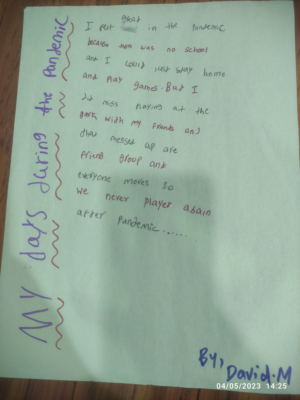 My days during the Pandemic
I felt good in the Pandemic
because there was no school
and I could just stay home
and play games. But I
did miss playing at the
park with my friends and
that messed up are
friend group and
everyone moves so
we never player again
after Pandemic.....
By, David.M
04/05/2023 14:25